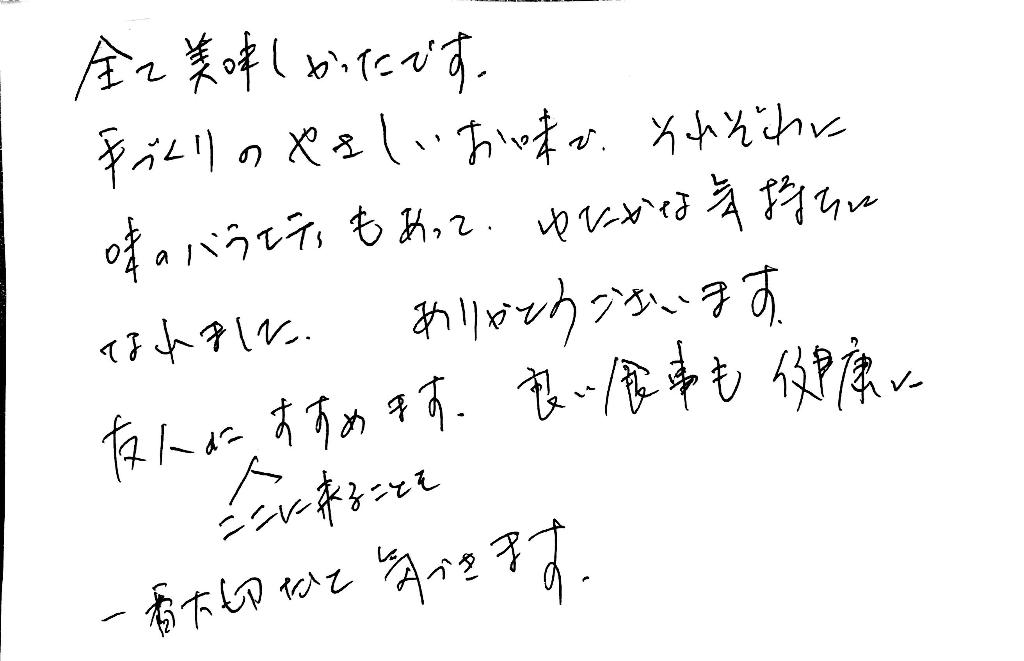 全て美味しかったです。
手づくりのやさしいお味で、それぞれに
味のバラエティもあって、ゆたかな気持ちに
なれました。 ありがとうございます。
友人にすすめます。良い食事も健康に
ここに来ることを
一番大切だと気づきます。